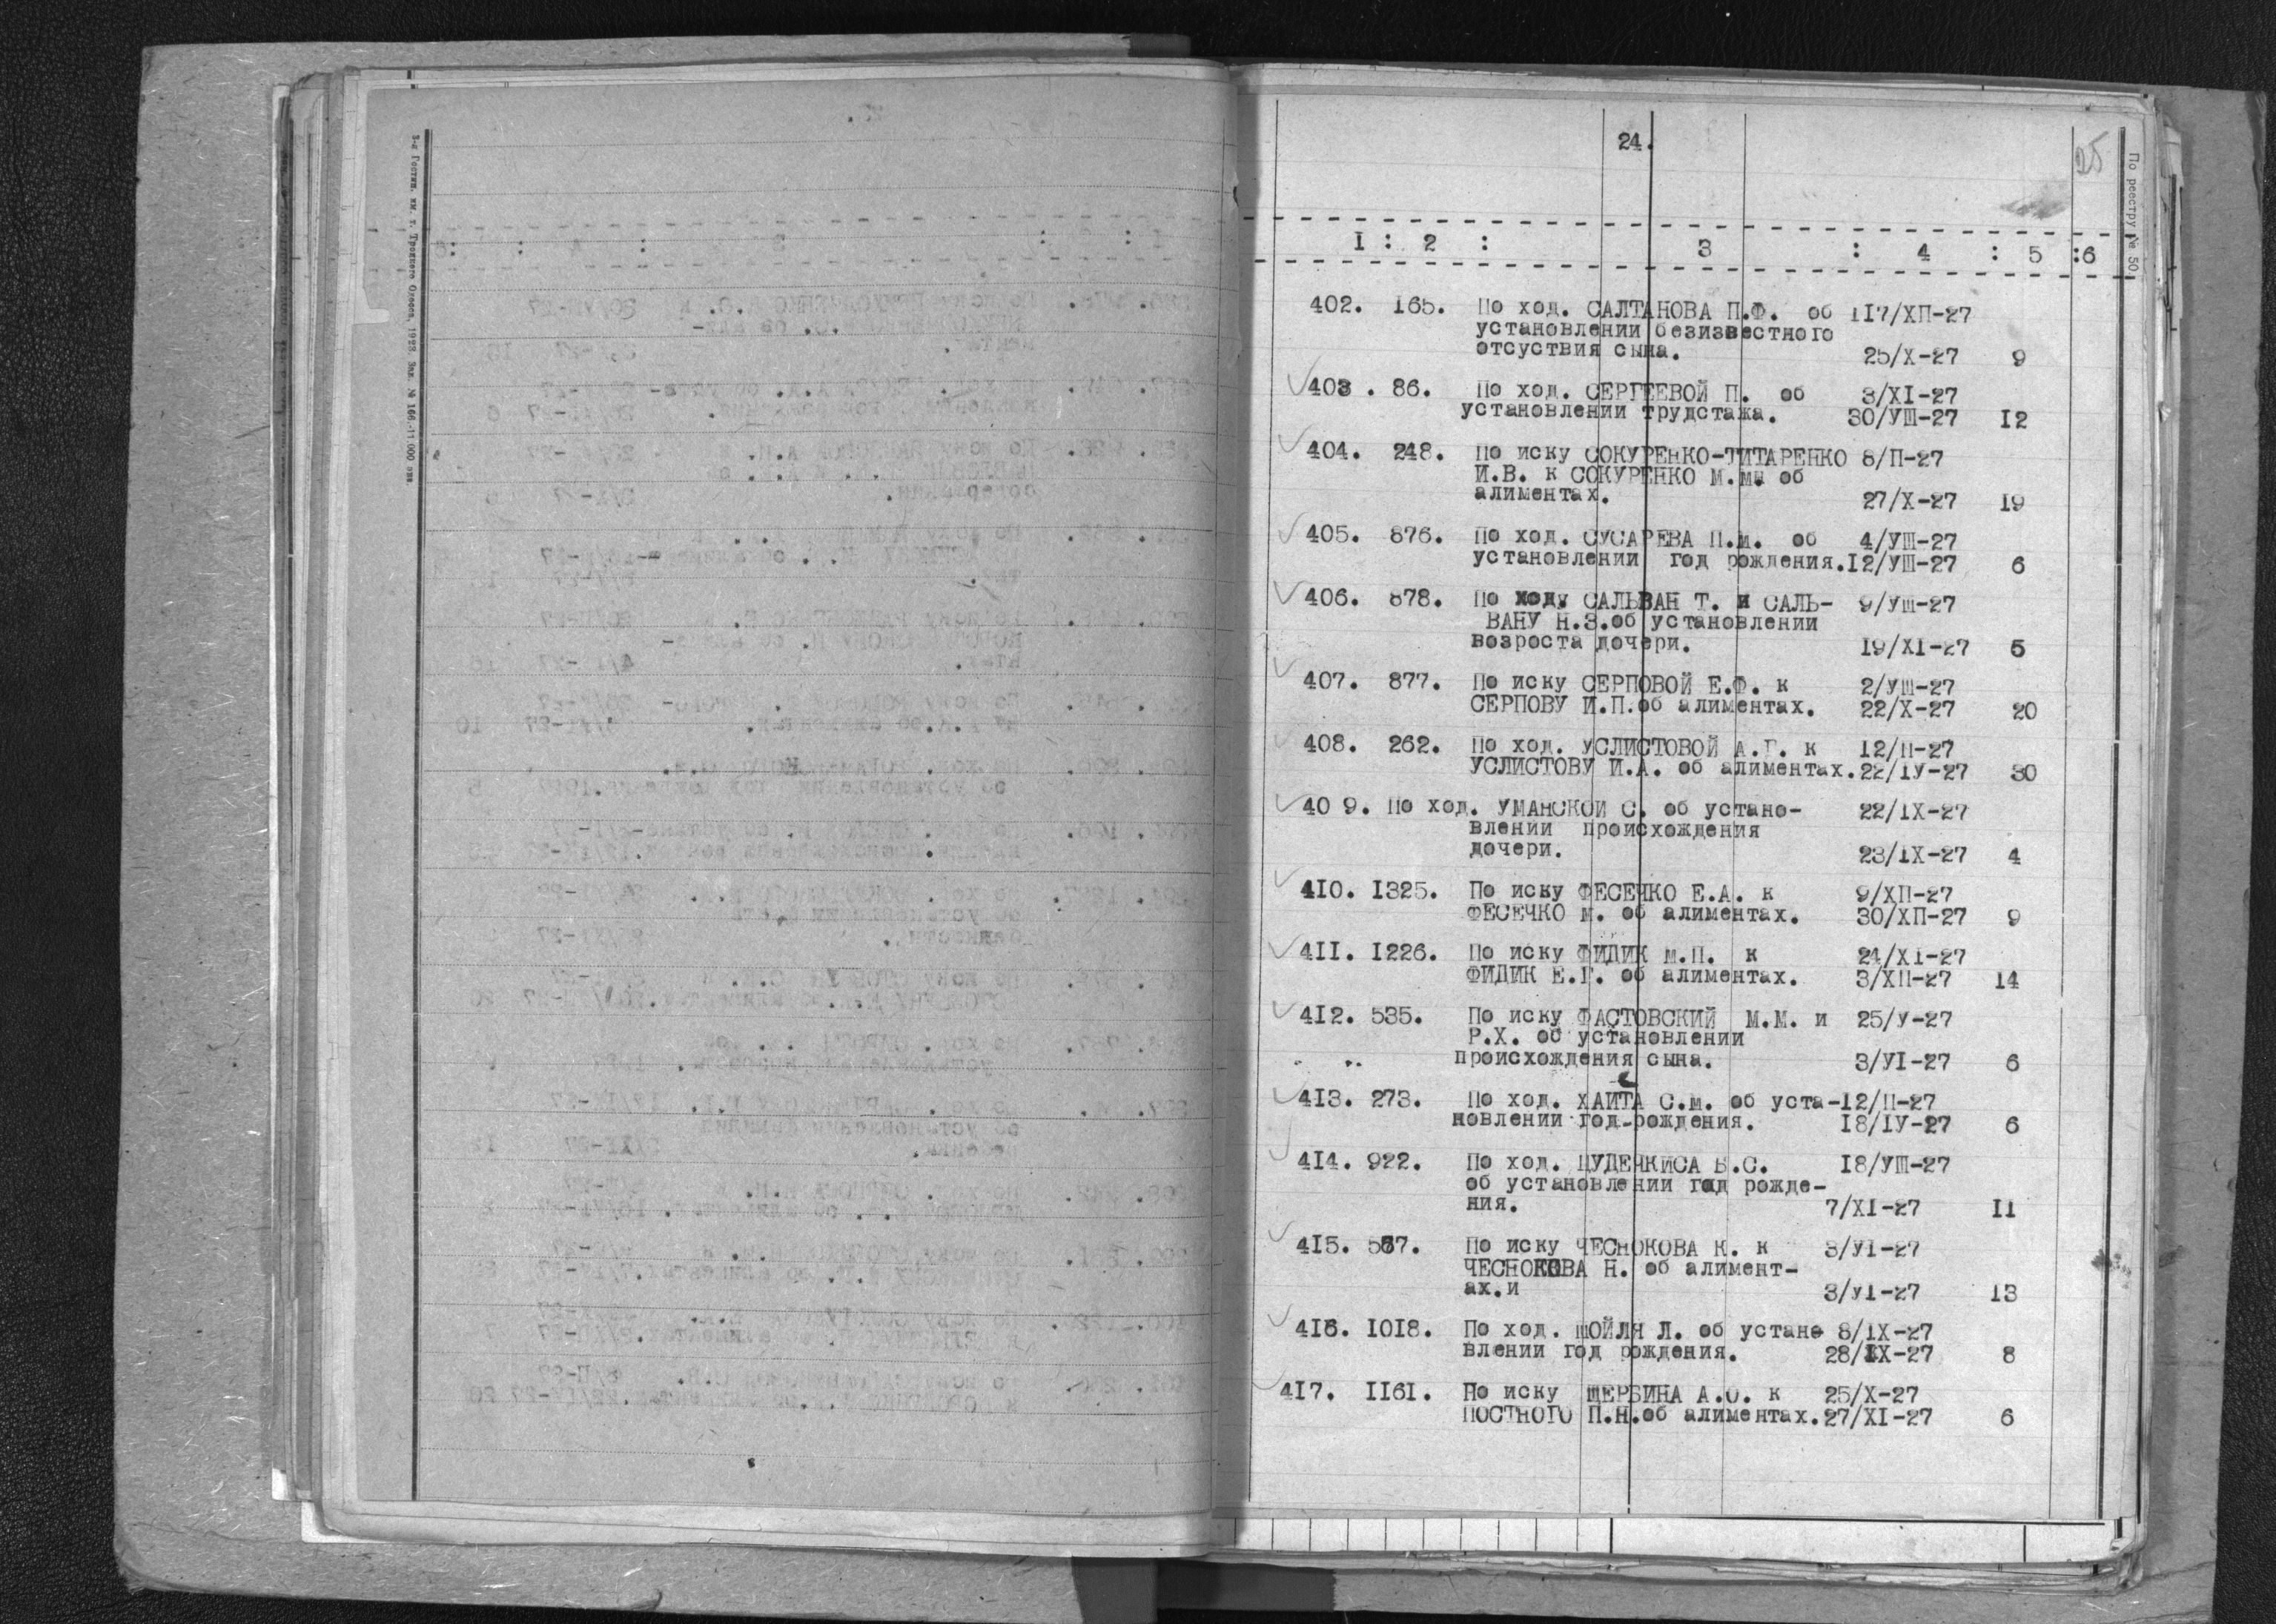 3-я Гостип. им. т. Троцкого Одесса, 1923. Зак. № 166.-11.000 экз.
24.
25
По реестру № 50
I : 2 : 3 : 4 : 5 :6
402. 165. По ход. САЛТАНОВА П.Ф. об 117/ХП-27
установлении безизвестного
отсуствия сына. 25/Х-27 9
403. 86. По ход. СЕРГЕЕВОЙ П. об 3/XI-27
установлении трудстажа. 30/УШ-27 I2
404. 248. По иску СОКУРЕНКО-ТИТАРЕНКО 8/П-27
И.В. к СОКУРЕНКО М.М. об
алиментах. 27/Х-27 I9
405. 876. По ход. СУСАРЕВА П.М. об 4/УШ-27
установлении год рождения.I2/УШ-27 6
406. 878. По ходу САЛЬВАН Т. и САЛЬ- 9/УШ-27
ВАНУ Н.З.об установлении
возроста дочери. I9/XI-27 5
407. 877. По иску СЕРПОВОЙ Е.Ф. к 2/УШ-27
СЕРПОВУ И.П.об алиментах. 22/Х-27 20
408. 262. По ход. УСЛИСТОВОЙ А.Г. к I2/П-27
УСЛИСТОВУ И.А. об алиментах.22/IУ-27 30
40 9. По ход. УМАНСКОЙ С. об устано- 22/IX-27
влении происхождения
дочери. 23/IX-27 4
4I0. I325. По иску ФЕСЕЧКО Е.А. к 9/ХП-27
ФЕСЕЧКО М. об алиментах. 30/ХП-27 9
4II. I226. По иску ФИДИК М.П. к 24/XI-27
ФИДИК Е.Г. об алиментах. 3/ХП-27 I4
4I2. 535. По иску ФАСТОВСКИЙ М.М. и 25/У-27
Р.Х. об установлении
происхождения сына. 3/УI-27 6
4I3. 273. По ход. ХАИТА С.М. об уста-I2/П-27
новлении год-рождения. I8/IУ-27 6
4I4. 922. По ход. ЦУДЕЧКИСА Б.С. I8/УШ-27
об установлении год рожде-
ния. 7/XI-27 II
4I5. 567. По иску ЧЕСНОКОВА К. к 3/УI-27
ЧЕСНОКОВА Н. об алимент-
ах.и 3/УI-27 I3
4I6. I0I8. По ход. ШОЙЛЯ Л. об устано 8/IX-27
влении год рождения. 28/IX-27 8
4I7. II6I. По иску ЩЕРБИНА А.О. к 25/Х-27
ПОСТНОГО П.Н.об алиментах.27/XI-27 6